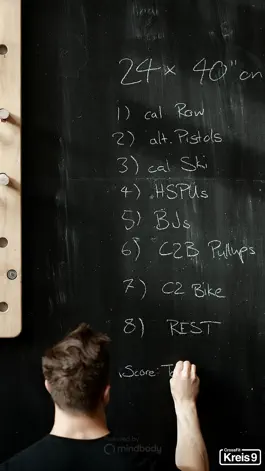 24x 40"on
1) cal Row
2) alt. Pistols
3) cal Ski
4) HSPUs
5) BJs
6) C2B Pullups
7) C2 Bike
8) REST
Score: T
powered by
mindbody
CrossFit
Kreis9